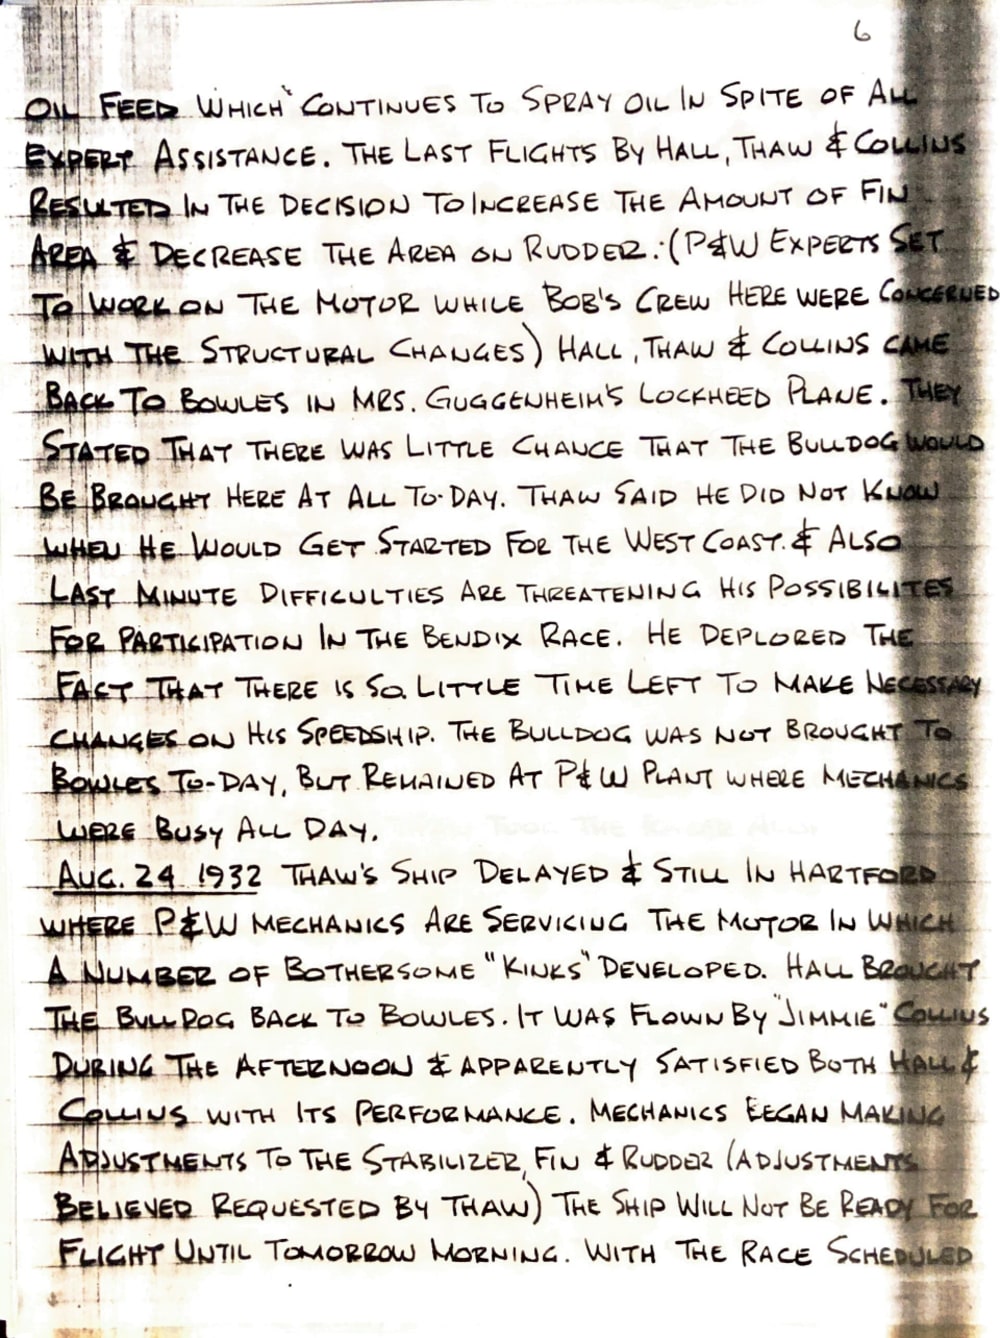 6
OIL FEED WHICH CONTINUES TO SPRAY OIL IN SPITE OF ALL
EXPERT ASSISTANCE. THE LAST FLIGHTS BY HALL, THAW & COLLINS
RESULTED IN THE DECISION TO INCREASE THE AMOUNT OF FIN
AREA & DECREASE THE AREA ON RUDDER. (P&W EXPERTS SET
TO WORK ON THE MOTOR WHILE BOB'S CREW HERE WERE CONCERNED
WITH THE STRUCTURAL CHANGES) HALL, THAW & COLLINS CAME
BACK TO BOWLES IN MRS. GUGGENHEIM'S LOCKHEED PLANE. THEY
STATED THAT THERE WAS LITTLE CHANCE THAT THE BULLDOG WOULD
BE BROUGHT HERE AT ALL TO-DAY. THAW SAID HE DID NOT KNOW
WHEN HE WOULD GET STARTED FOR THE WEST COAST. & ALSO
LAST MINUTE DIFFICULTIES ARE THREATENING HIS POSSIBILITES
FOR PARTICIPATION IN THE BENDIX RACE. HE DEPLORED THE
FACT THAT THERE IS SO LITTLE TIME LEFT TO MAKE NECESSARY
CHANGES ON HIS SPEEDSHIP. THE BULLDOG WAS NOT BROUGHT TO
BOWLES TO-DAY, BUT REMAINED AT P&W PLANT WHERE MECHANICS
WERE BUSY ALL DAY.
AUG. 24 1932 THAW'S SHIP DELAYED & STILL IN HARTFORD
WHERE P&W MECHANICS ARE SERVICING THE MOTOR IN WHICH
A NUMBER OF BOTHERSOME "KINKS" DEVELOPED. HALL BROUGHT
THE BULLDOG BACK TO BOWLES. IT WAS FLOWN BY "JIMMIE" COLLINS
DURING THE AFTERNOON & APPARENTLY SATISFIED BOTH HALL &
COLLINS WITH ITS PERFORMANCE. MECHANICS BEGAN MAKING
ADJUSTMENTS TO THE STABILIZER, FIN & RUDDER (ADJUSTMENTS
BELIEVED REQUESTED BY THAW) THE SHIP WILL NOT BE READY FOR
FLIGHT UNTIL TOMORROW MORNING. WITH THE RACE SCHEDULED